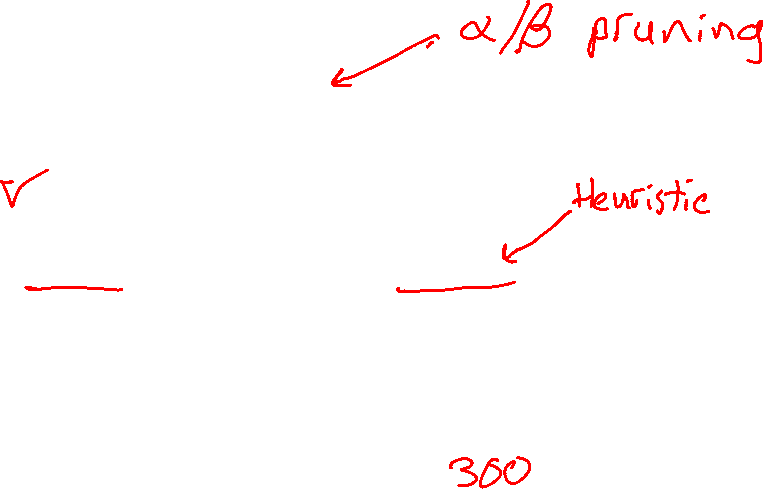 α/β pruning
Heuristic
300